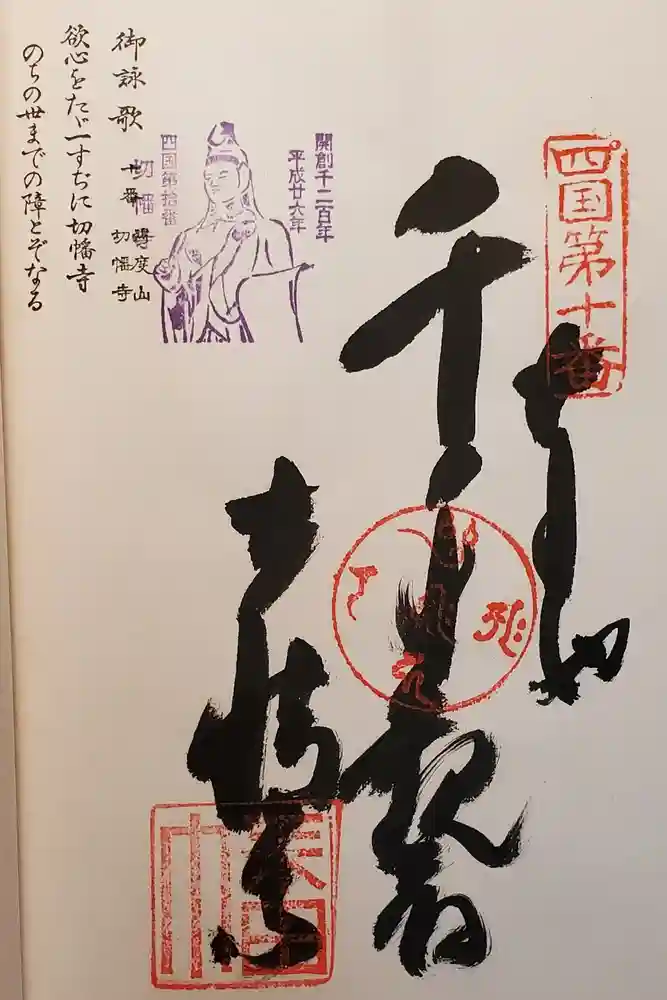 四国第十番
千手観音
切幡寺
開創千二百年
平成廿六年
四国第拾番
切幡寺
御詠歌 十番 得度山
切幡寺
欲心をたゞ一すぢに切幡寺
のちの世までの障とぞなる